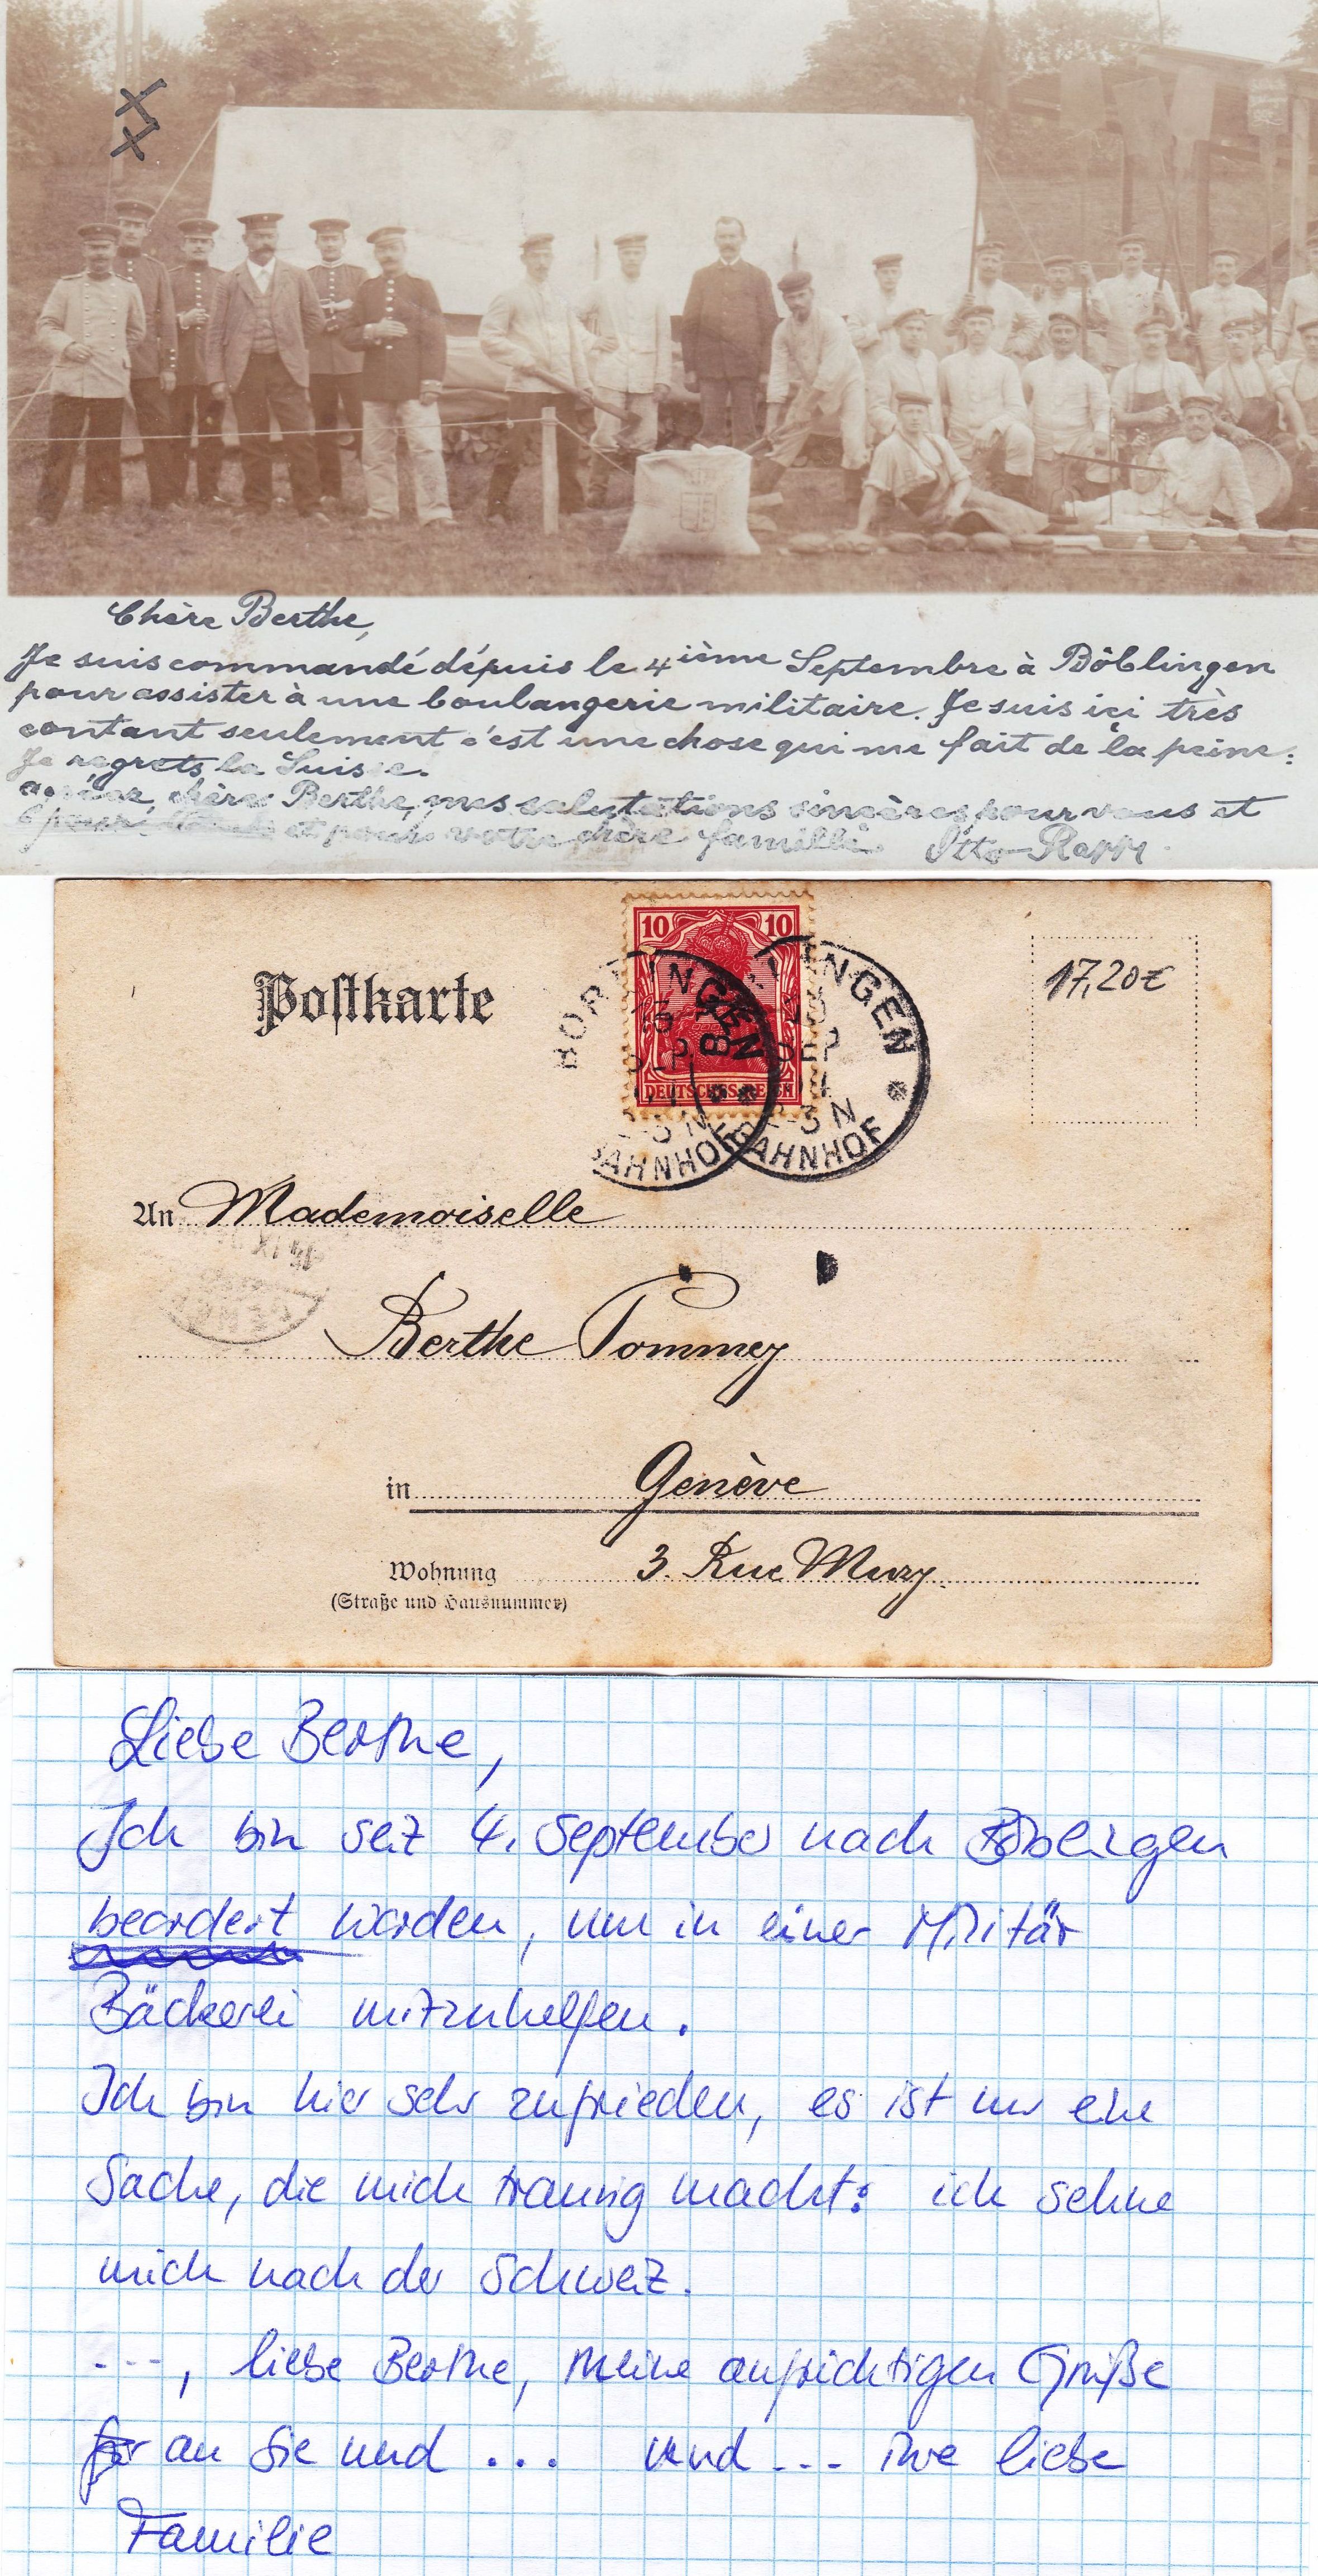 Chère Berthe,
Je suis commandé dépuis le 4ième Septembre à Böblingen
pour assister à une boulangerie militaire. Je suis ici très
contant seulement c'est une chose qui me fait de la peine:
Je regrets la Suisse.
chère Berthe, mes salutations sincères pour vous et
et pour votre chère famille. Otto Rapp
Postkarte
10 10
DEUTSCHES REICH
BAHNHOF
BAHNHOF
17,20€
An Mademoiselle
Berthe Pommey
in Genève
Wohnung 3. Rue Muzy.
(Straße und Hausnummer)
Liebe Berthe,
Ich bin seit 4. September nach Böblingen
beordert worden, um in einer Militär
Bäckerei mitzuhelfen.
Ich bin hier sehr zufrieden, es ist nur eine
Sache, die mich traurig macht: ich sehne
mich nach der Schweiz.
---, liebe Berthe, meine aufrichtigen Grüße
an Sie und ... und --- ihre liebe
Familie